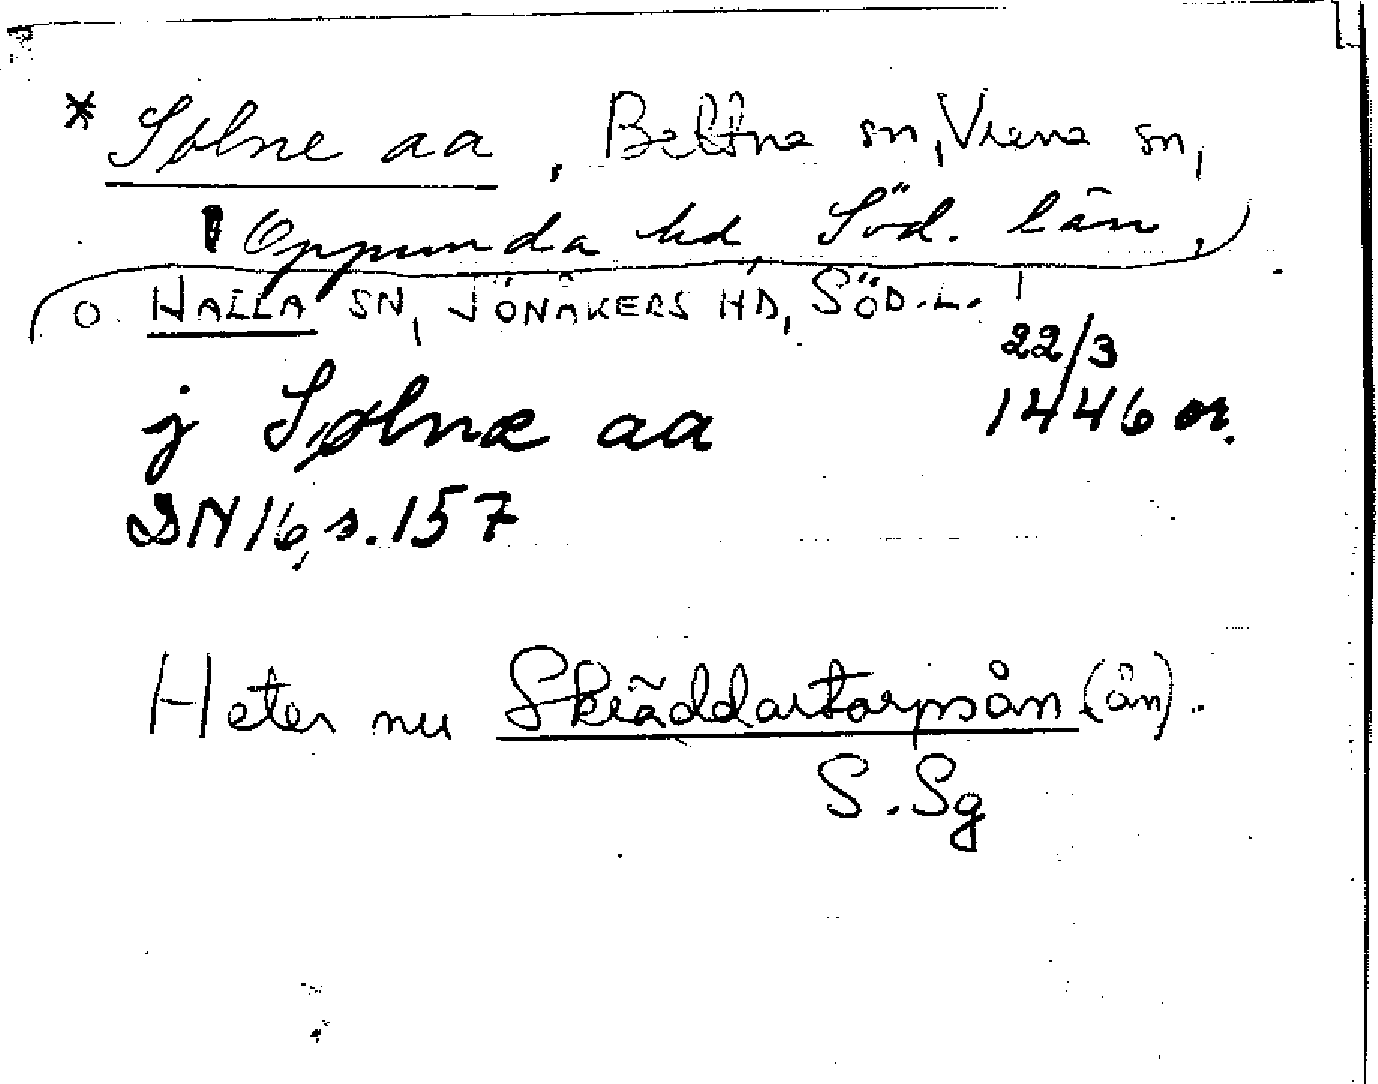 * Sølne aa, Bettna sn, Vrena sn,
Oppunda hd, Söd. län,
o. HALLA SN, JÖNÅKERS HD, SÖD.L.
22/3
j Sølnæ aa 1446 or.
DN 16, s. 157
Heter nu Skräddartorpsån (ån).
S. Sg